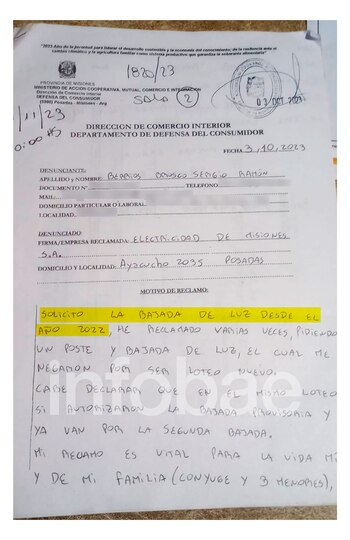 "2023-Año de la juventud para liderar el desarrollo sostenible y la economía del conocimiento; de la resiliencia ante el
cambio climático y la agricultura familiar como sistema productivo que garantiza la soberanía alimentaria"
1820/23
PROVINCIA DE MISIONES
MINISTERIO DE ACCION COOPERATIVA, MUTUAL, COMERCIO E INTEGRACION
Dirección de Comercio Interior
DEFENSA DEL CONSUMIDOR
(3300) Posadas - Misiones - Arg
SALA 2
03 OCT. 2023
/11/23
DIRECCION DE COMERCIO INTERIOR
DEPARTAMENTO DE DEFENSA DEL CONSUMIDOR
FECHA 3/10/2023
DENUNCIANTE:
APELLIDO y NOMBRE: SERGIO RAMÓN
DOCUMENTO N° TELEFONO
MAIL
DOMICILIO PARTICULAR O LABORAL
LOCALIDAD
DENUNCIADO:
FIRMA/EMPRESA RECLAMADA: ELECTRICIDAD DE MISIONES
S.A.
DOMICILIO Y LOCALIDAD: AYACUCHO 2035 POSADAS
MOTIVO DE RECLAMO:
SOLICITO LA BAJADA DE LUZ DESDE EL
AÑO 2022, HE RECLAMADO VARIAS VECES, PIDIENDO
UN POSTE Y BAJADA DE LUZ, EL CUAL ME
NEGARON POR SER LOTEO NUEVO.
CABE DECLARAR QUE EN EL MISMO LOTEO
SI AUTORIZARON LA BAJADA PROVISORIA Y
YA VAN POR LA SEGUNDA BAJADA.
MI RECLAMO ES VITAL PARA LA VIDA MI
Y DE MI FAMILIA (CONYUGE Y 3 MENORES),
infobae